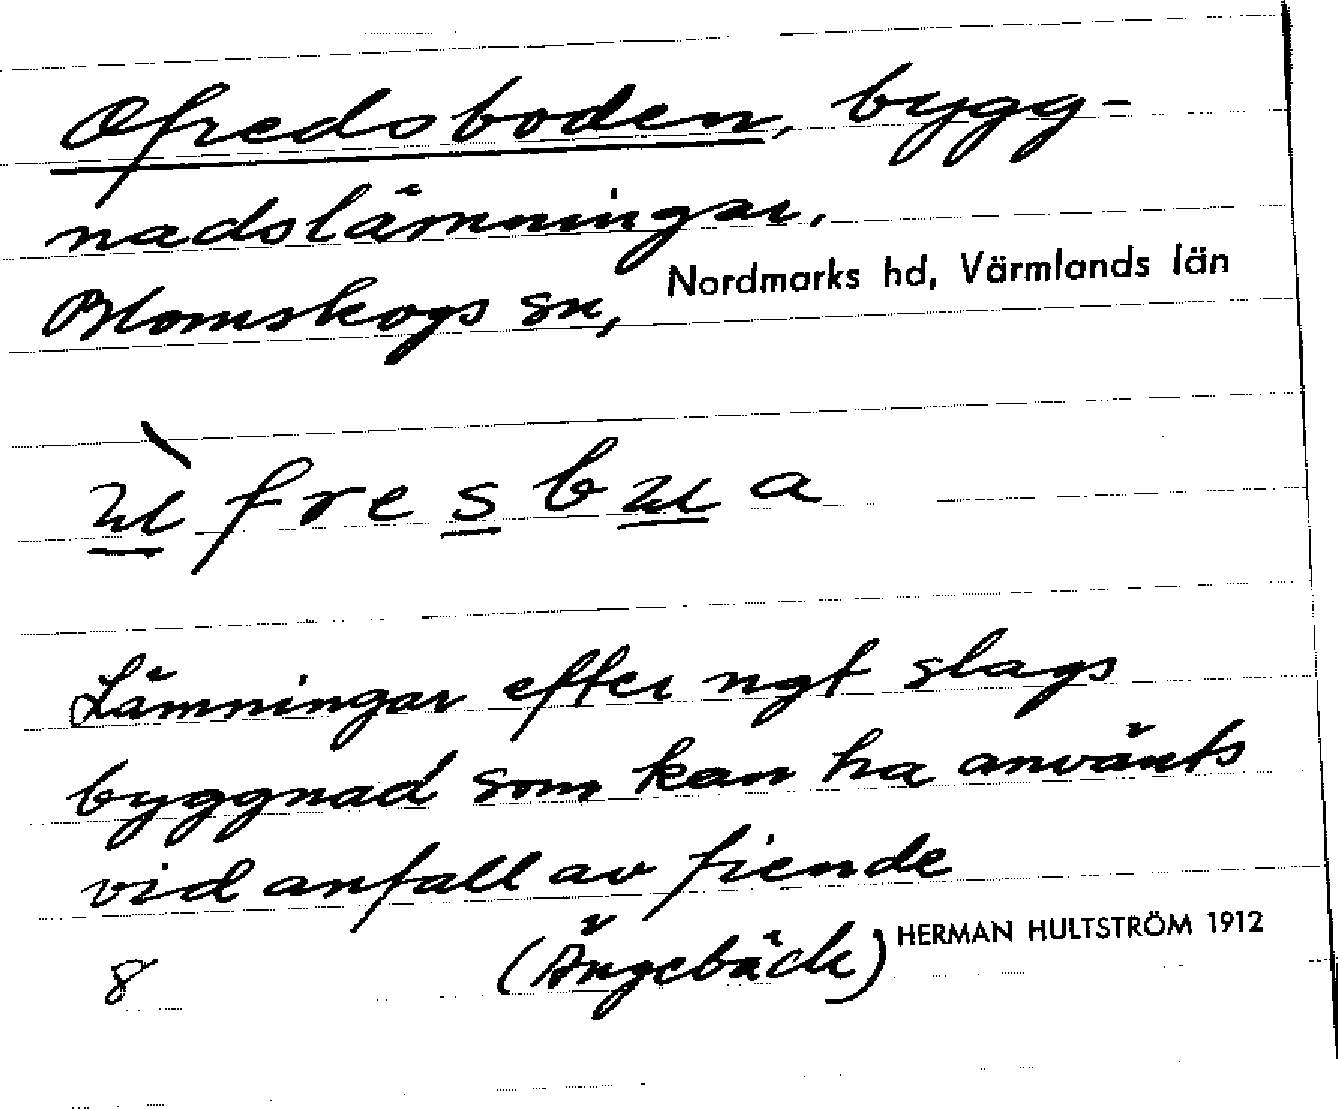 Ofredsboden, bygg-
nadslämningar,
Blomskogs sn, Nordmarks hd, Värmlands län
ùfresbua
Lämningar efter ngt slags
byggnad som kan ha använts
vid anfall av fiende
8 (Ängebäck) HERMAN HULTSTRÖM 1912